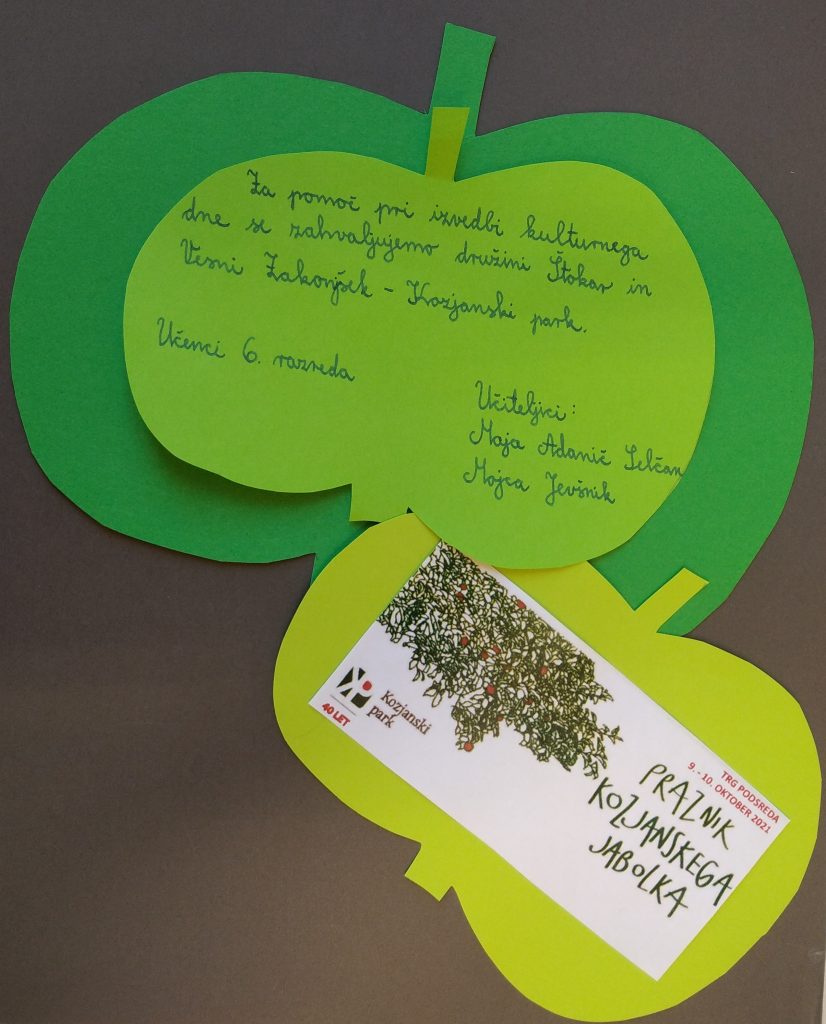 Za pomoč pri izvedbi kulturnega
dne se zahvaljujemo družini Štokar in
Vesni Zakonjšek - Kozjanski park.
Učenci 6. razreda
Učiteljici:
Maja Adanič Selčan
Mojca Jevšnik
KP
Kozjanski
park
40 LET
TRG PODSREDA
9. - 10. OKTOBER 2021
PRAZNIK
KOZJANSKEGA
JABOLKA